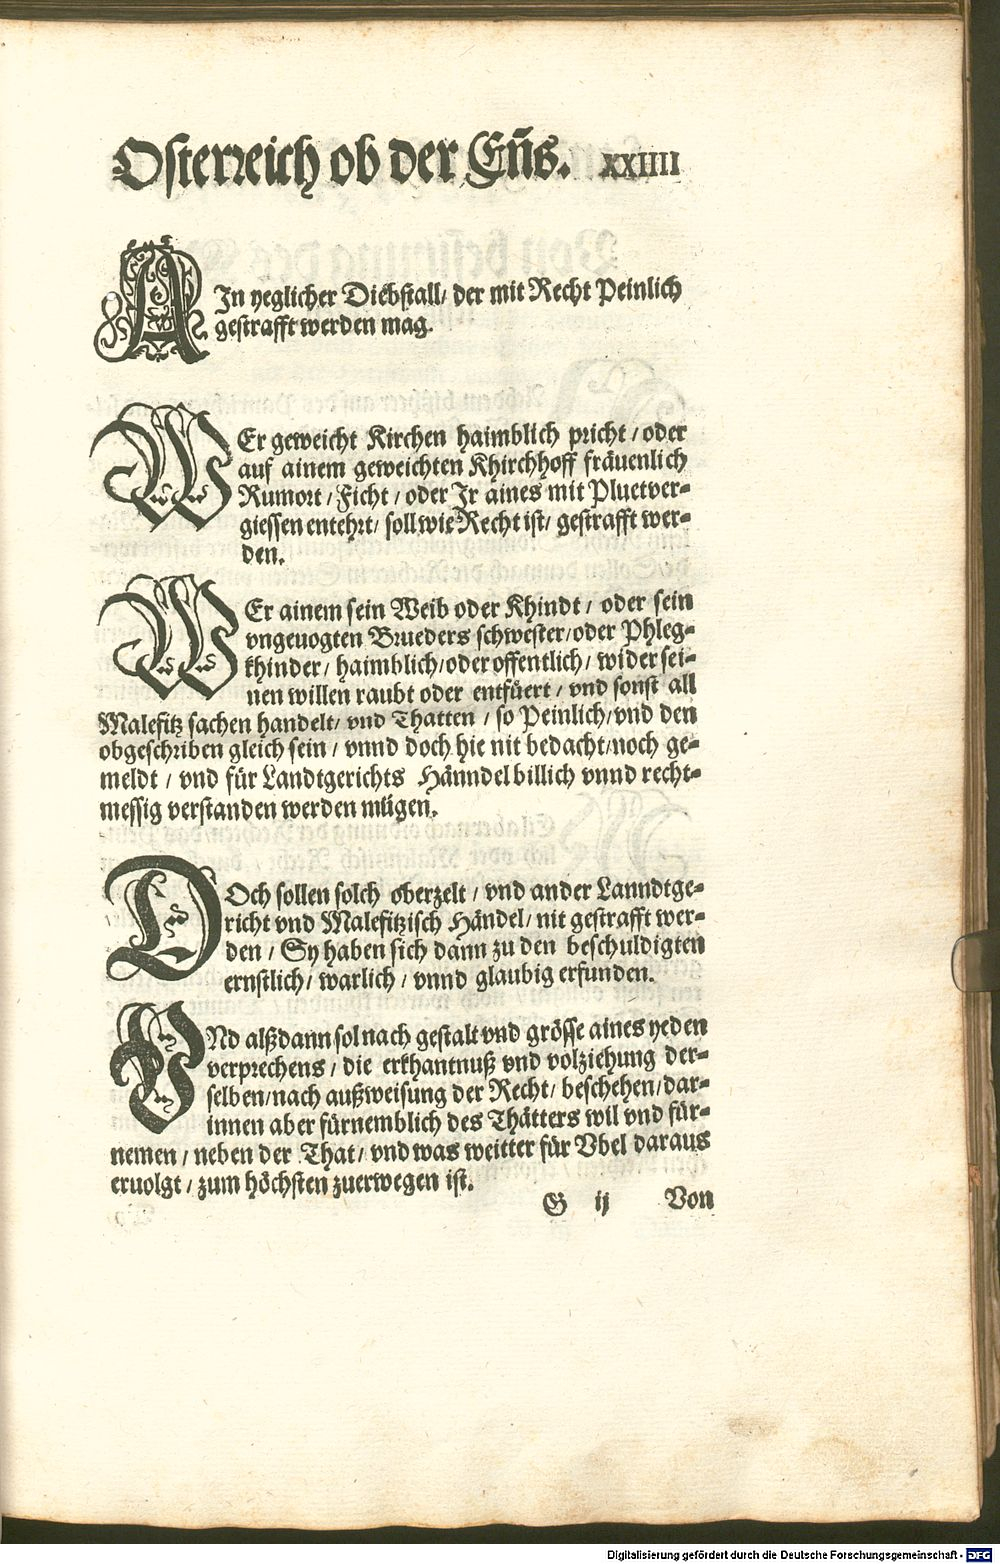 Osterreich ob der Eñs. XXIIII
AIn yeglicher Diebstall/ der mit Recht Peinlich
gestrafft werden mag.
WEr geweicht Kirchen haimblich pricht / oder
auf ainem geweichten Khirchhoff fräuenlich
Rumort / Ficht / oder Ir aines mit Pluetver-
giessen entehrt/ soll wie Recht ist/ gestrafft wer-
den.
WEr ainem sein Weib oder Khindt / oder sein
vngeuogten Brueders schwester/oder Phleg-
khinder / haimblich/oder offentlich / wider sei-
nen willen raubt oder entfüert / vnd sonst all
Malefitz sachen handelt/ vnd Thatten / so Peinlich/vnd den
obgeschriben gleich sein / vnnd doch hie nit bedacht/noch ge-
meldt / vnd für Landtgerichts Hänndel billich vnnd recht-
messig verstanden werden mügen.
DOch sollen solch oberzelt / vnd ander Lanndtge-
richt vnd Malefitzisch Händel/ nit gestrafft wer-
den / Sy haben sich dann zu den beschuldigten
ernstlich/ warlich / vnnd glaubig erfunden.
VNd alßdann sol nach gestalt vnd grösse aines yeden
verprechens / die erkhantnuß vnd volziehung der-
selben/nach außweisung der Recht/ beschehen/dar-
innen aber fürnemblich des Thätters wil vnd für-
nemen / neben der That/ vnd was weitter für Vbel daraus
eruolgt / zum höchsten zuerwegen ist.
G ij Von
Digitalisierung gefördert durch die Deutsche Forschungsgemeinschaft - DFG